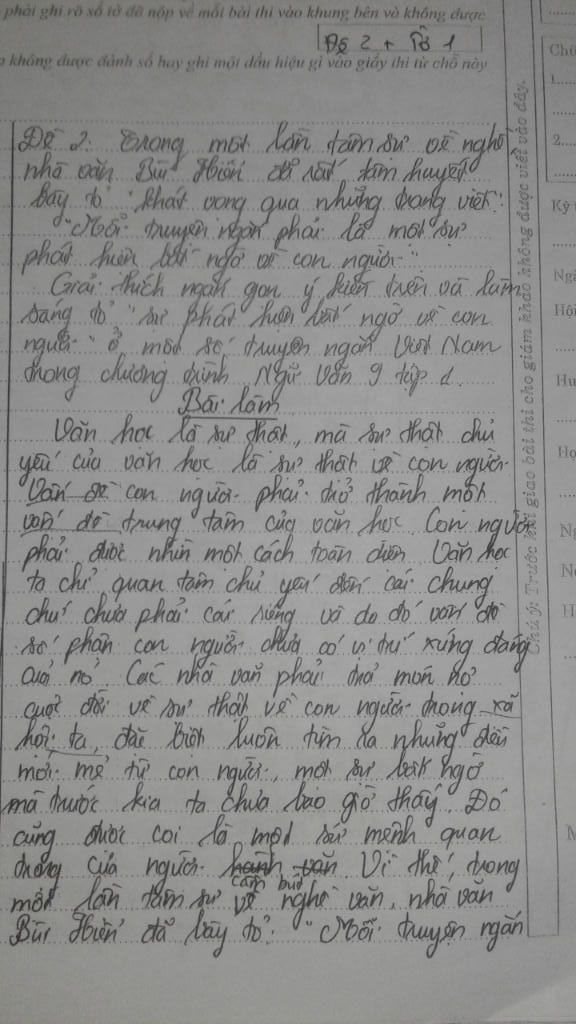 phải ghi rõ số tờ đã nộp về mỗi bài thi vào khung bên và không được
Đề 2 + Tờ 1
không được đánh số hay ghi một dấu hiệu gì vào giấy thi từ chỗ này
Đề 2: Trong một lần tâm sự về nghề
nhà văn Bùi Hiển đã rất tâm huyết
bày tỏ khát vọng qua những trang viết:
"Mỗi truyện ngắn phải là một sự
phát hiện bất ngờ về con người"
Giải thích ngắn gọn ý kiến trên và làm
sáng tỏ "sự phát hiện bất ngờ về con
người" ở một số truyện ngắn Việt Nam
trong chương trình Ngữ Văn 9 tập 1.
Bài làm
Văn học là sự thật, mà sự thật chủ
yếu của văn học là sự thật về con người.
Vấn đề con người phải trở thành một
vấn đề trung tâm của văn học. Con người
phải được nhìn một cách toàn diện. Văn học
ta chỉ quan tâm chủ yếu đến cái chung
chứ chưa phải cái riêng và do đó vấn đề
số phận con người chưa có vị trí xứng đáng
của nó. Các nhà văn phải trả món nợ
cuộc đời về sự thật về con người trong xã
hội ta, đặc biệt luôn tìm ra những điều
mới mẻ từ con người, một sự bất ngờ
mà trước kia ta chưa bao giờ thấy. Đó
cũng được coi là một sứ mệnh quan
trọng của người cầm bút. Vì thế, trong
một lần tâm sự về nghề văn, nhà văn
Bùi Hiển đã bày tỏ: "Mỗi truyện ngắn
Chú ý: Trước khi giao bài thi cho giám khảo không được viết vào đây.
Chữ
1....
2....
Kỳ
Hội